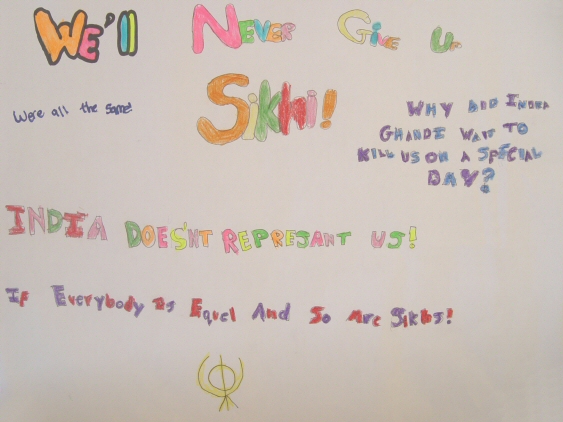 WE'll NEVER GivE UP
Sikhi!
We're all the same!
WHY DID INDRA
GHANDE WAIT TO
KILL US ON A SPECIAL
DAY?
INDIA DOESN'T REPRESANT US!
If Everybody Is Equel And So Are Sikhs!